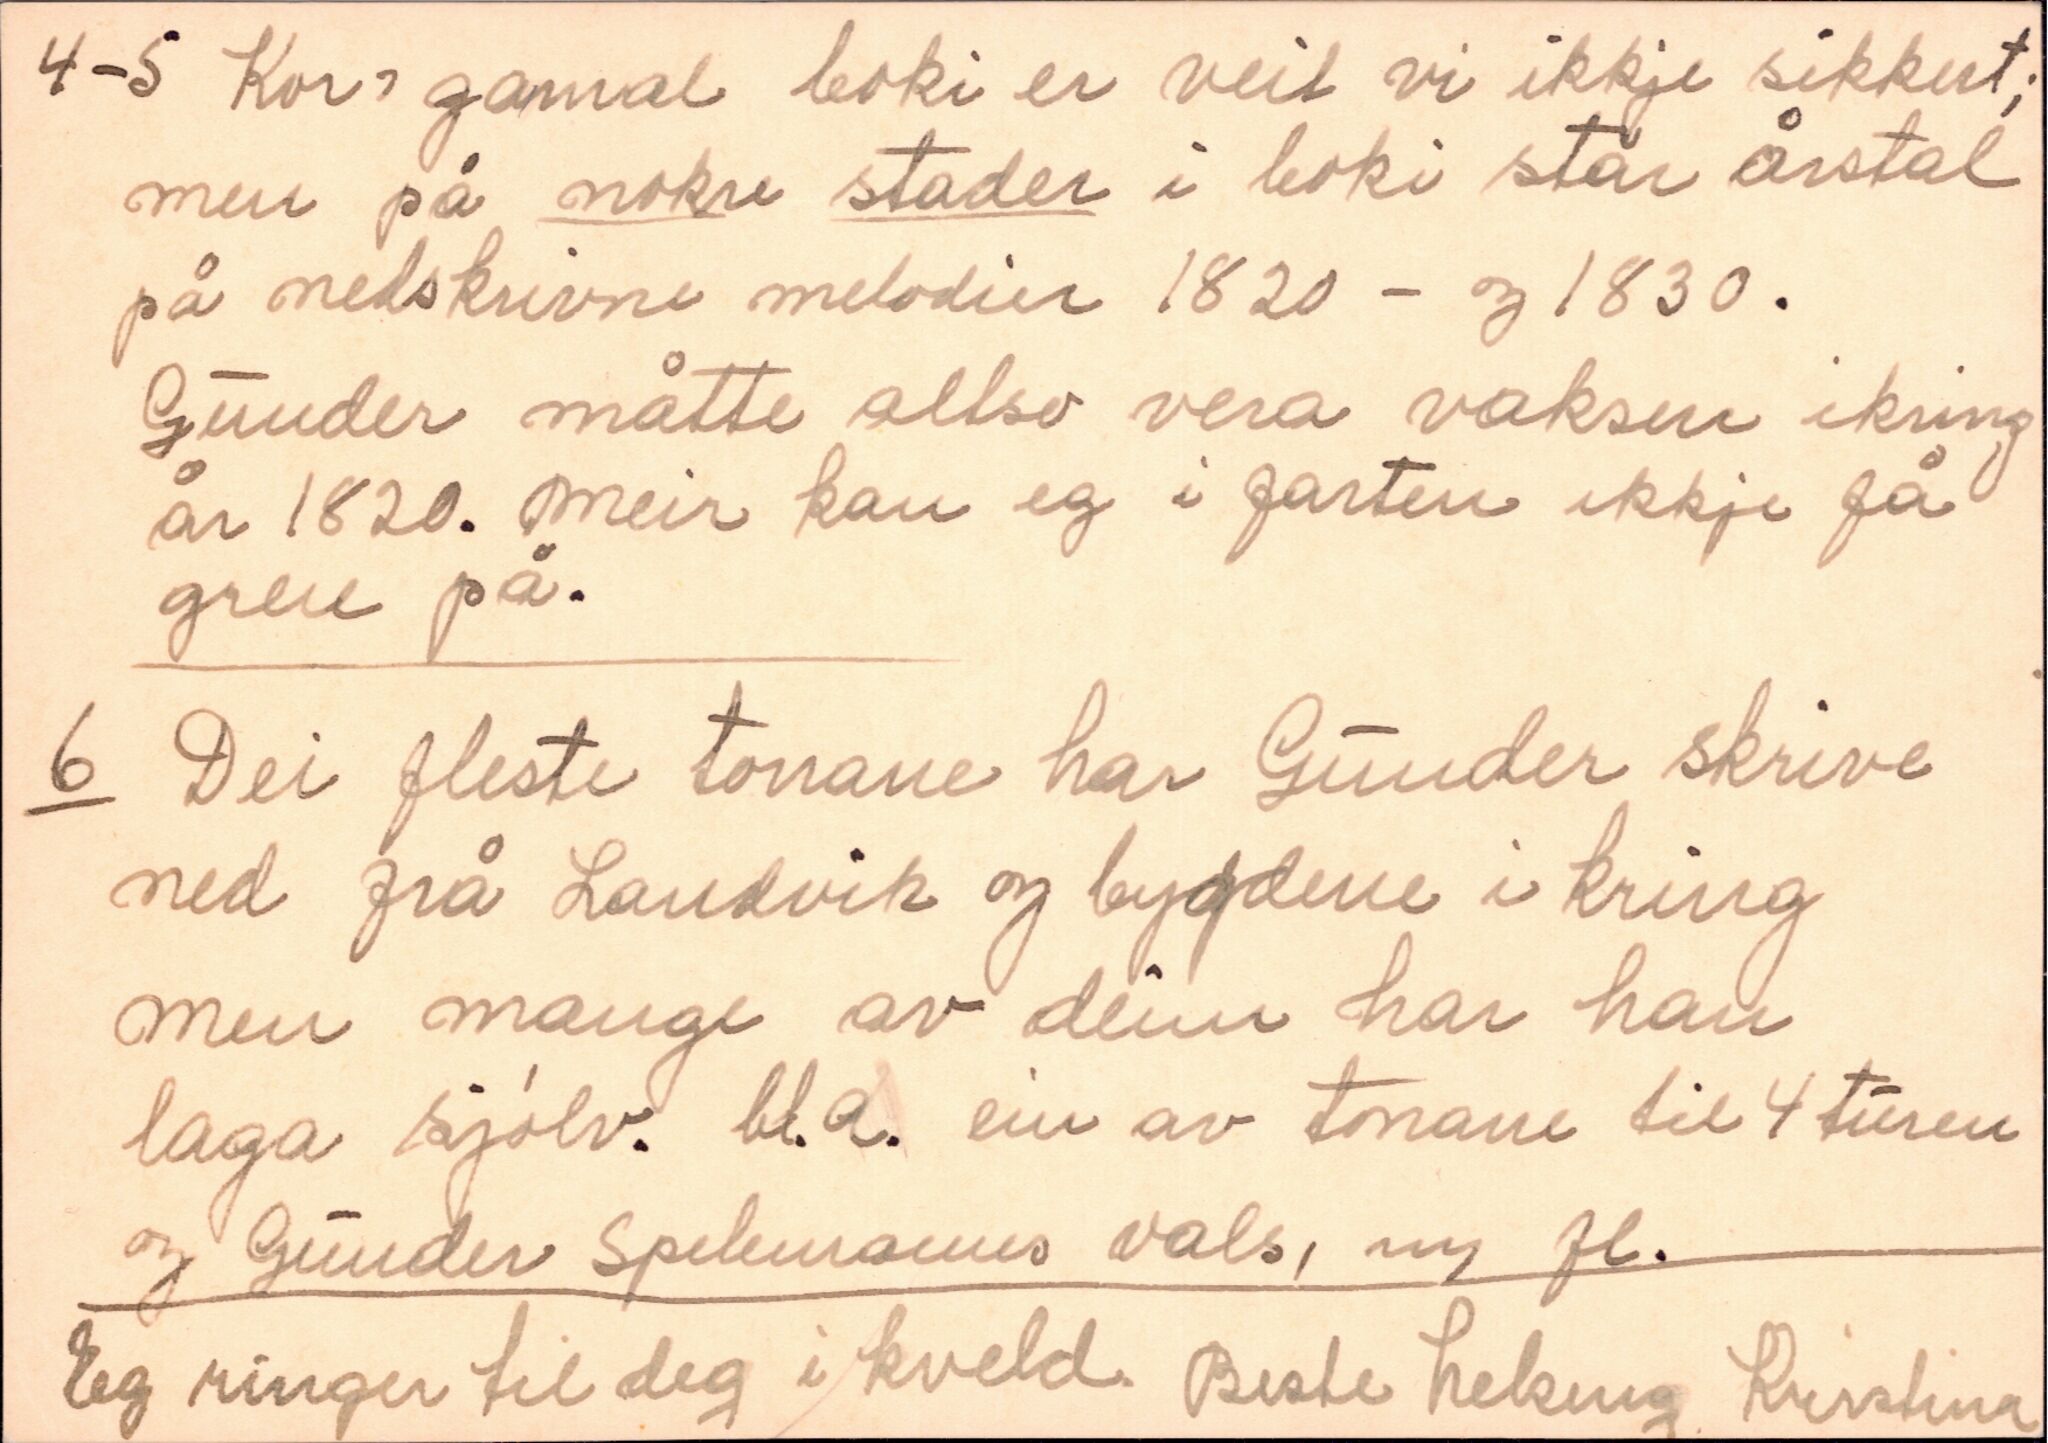 4-5 Kor gamal boki er veit vi ikkje sikkert;
men på nokre stader i boki står årstal
på nedskrivne melodier 1820 - og 1830.
Gunder måtte altso vera vaksen ikring
år 1820. Meir kan eg i farten ikkje få
greie på.
6 Dei fleste tonane har Gunder skrive
ned frå Landvik og bygdene i kring
men mange av deim har han
laga sjølv. bl.a. ein av tonane til 4 turen
og Gunder Spelemanns vals, og fl.
Eg ringer til deg i kveld. Beste helsing Kristina